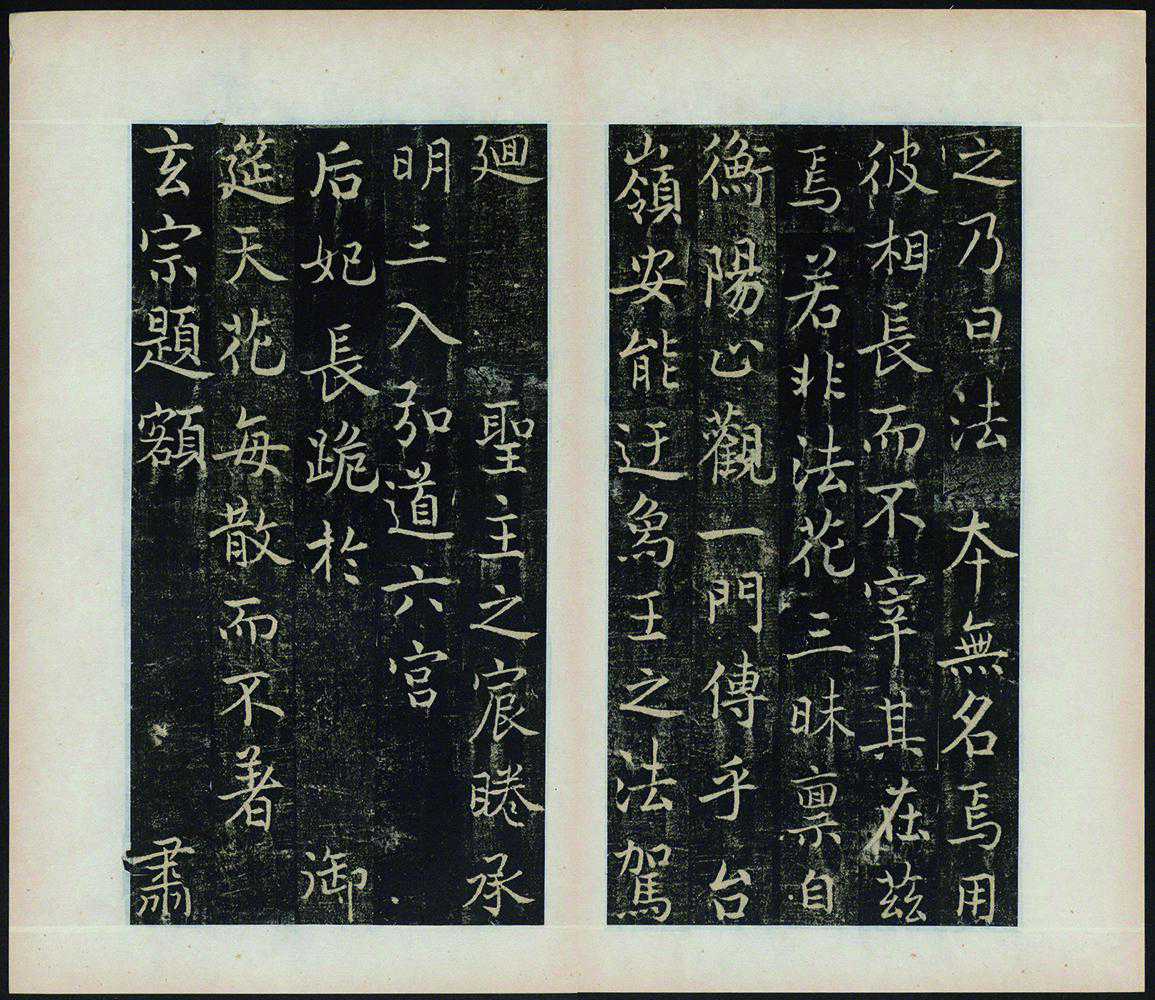 之乃曰法本無名焉用
彼相長而不宰其在茲
焉若非法花三昧禀自
衡陽止觀一門傳乎台
嶺安能迂象王之法駕
迴聖主之宸睠承
明三入弘道六宮
后妃長跪於御
筵天花每散而不著
玄宗題額肅